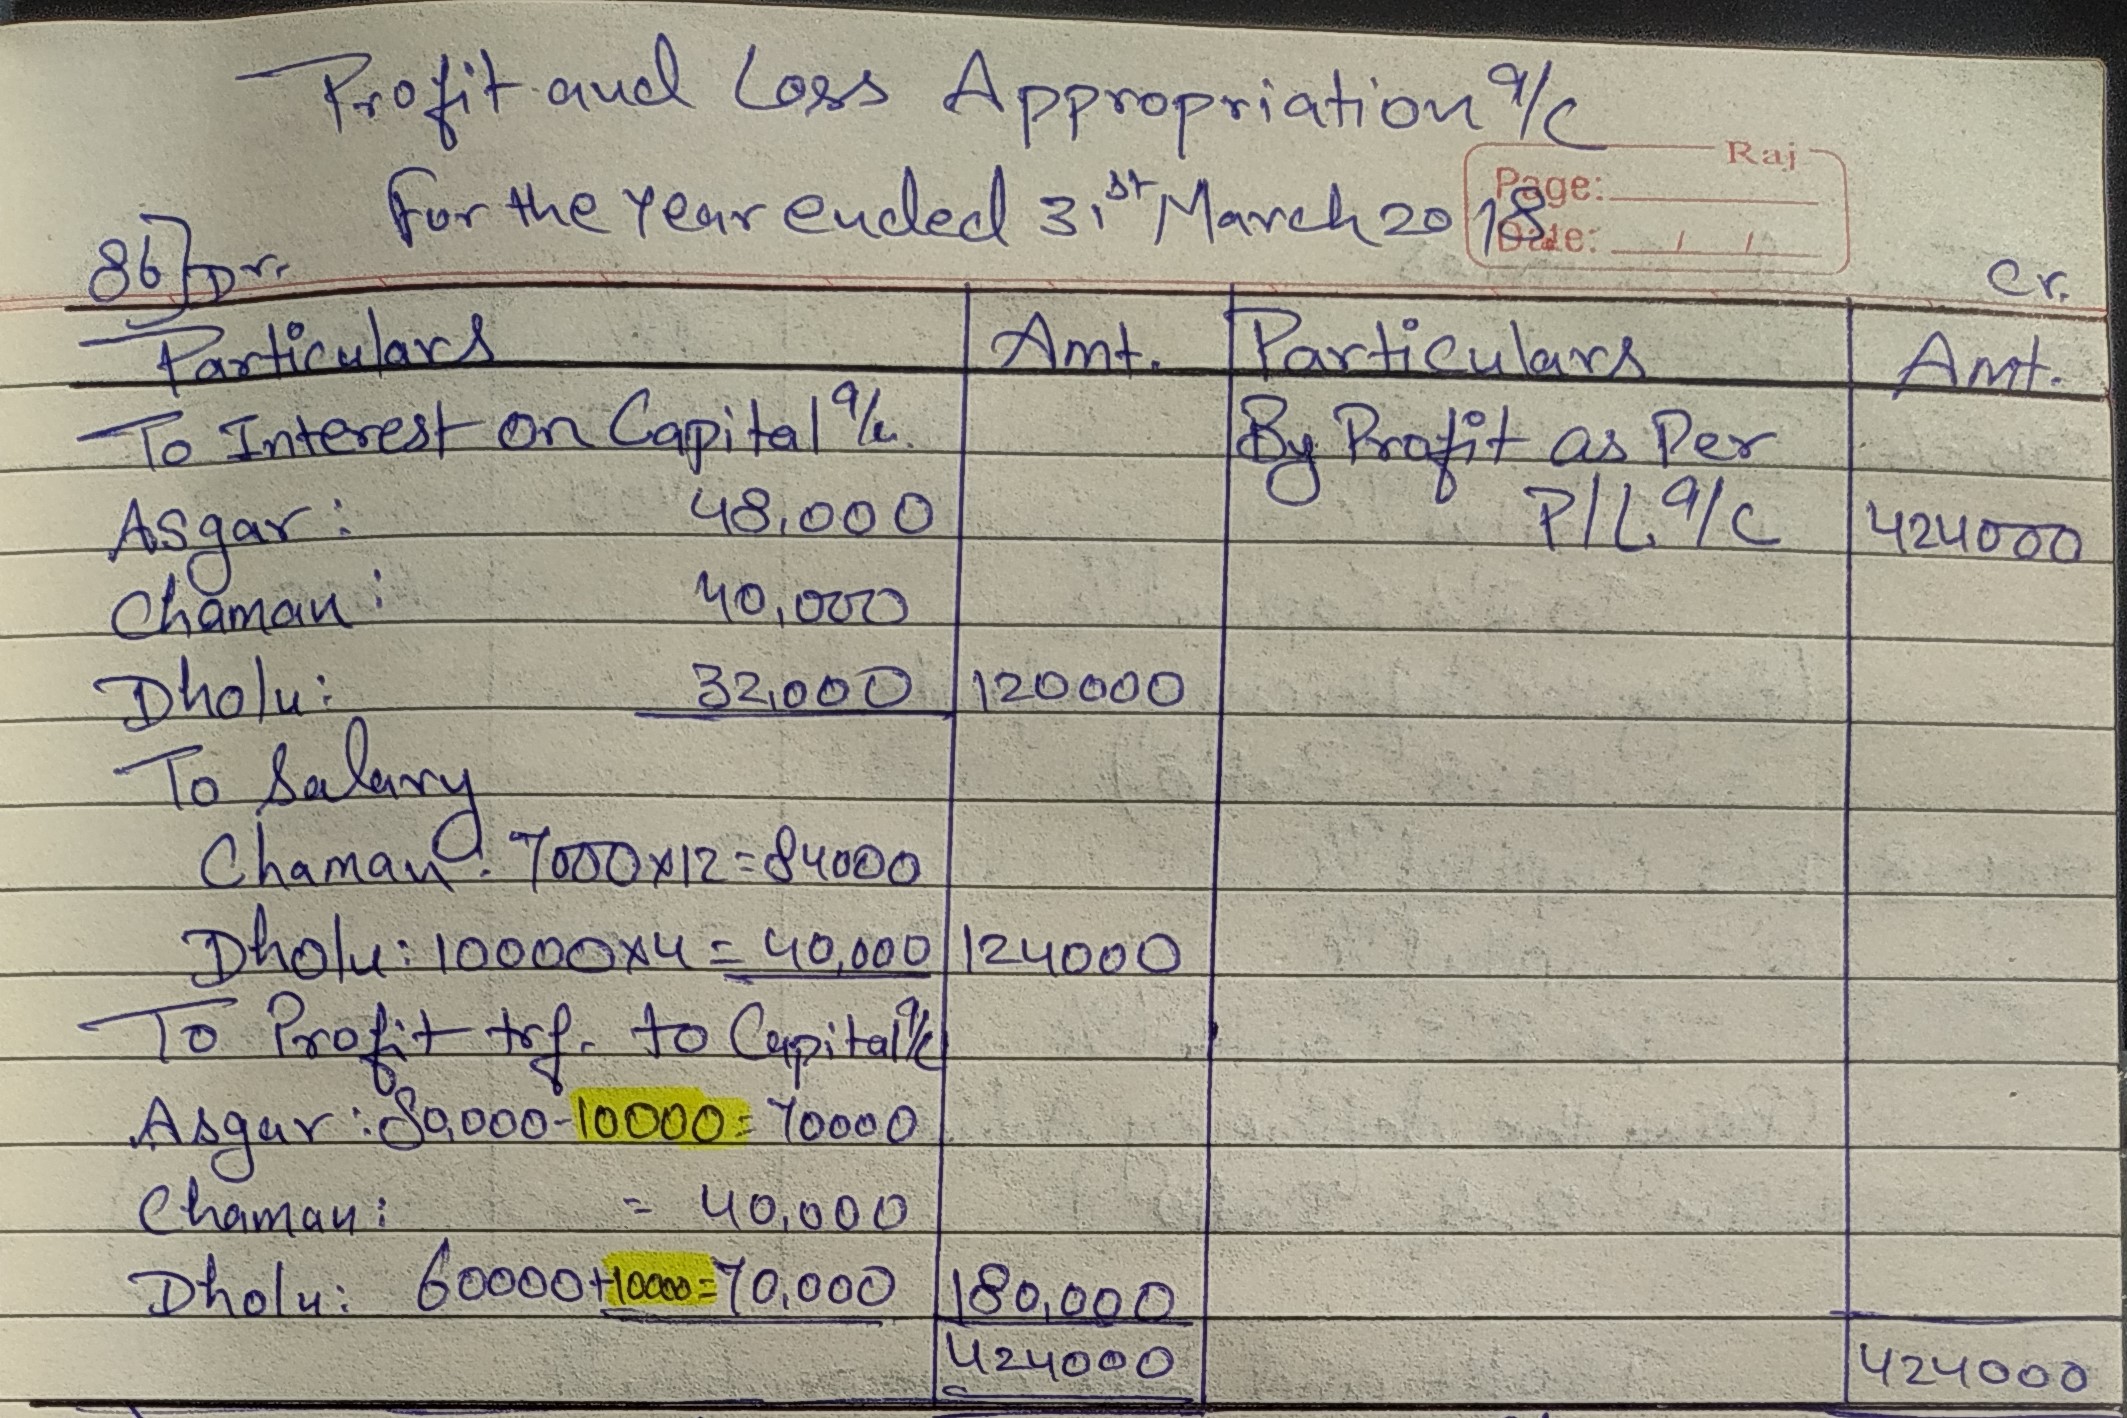 Profit and Loss Appropriation a/c
For the Year ended 31st March 2018
Raj
Page:
Date: / /
86] Dr. Cr.
Particulars Amt. Particulars Amt.
To Interest on Capital a/c. By Profit as Per
Asgar: 48,000 P/L a/c 424000
Chaman: 40,000
Dholu: 32,000 120000
To Salary
Chaman: 7000x12=84000
Dholu: 10000x4=40,000 124000
To Profit trf. to Capital a/c
Asgar: 80,000-10000=70000
Chaman: = 40,000
Dholu: 60000+10000=70,000 180,000
424000 424000